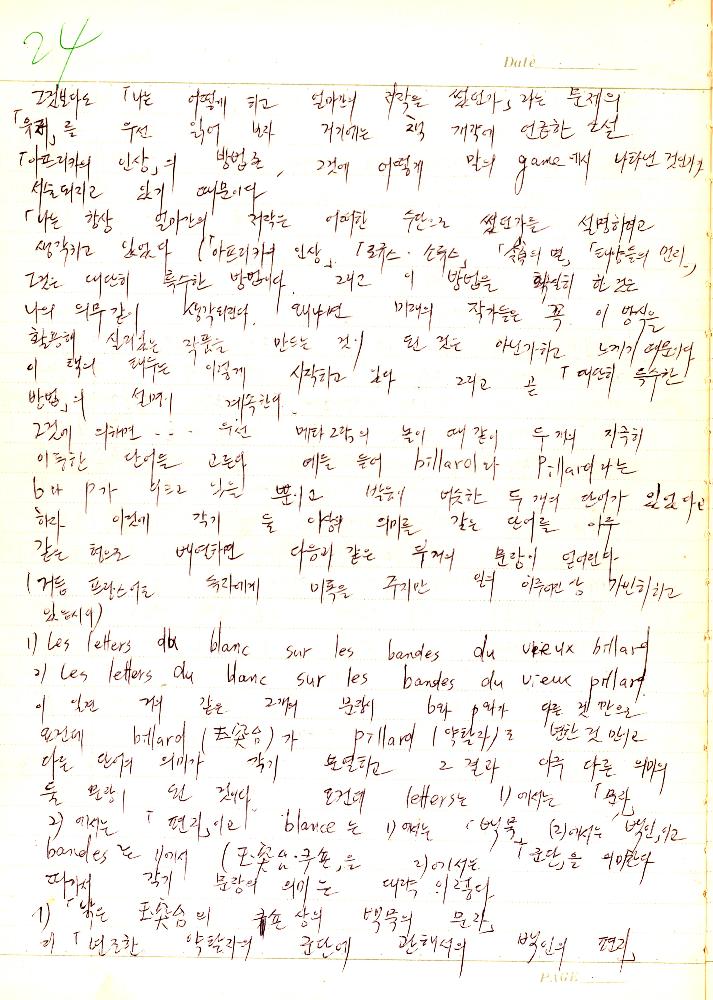 24
Date
그것보다도 「나는 어떻게 하고 얼마간의 저작을 썼는가」 라는 문제의
「유저」를 우선 읽어 보라 거기에는 책 개작에 언급한 소설
「아프리카의 인상」의 방법은, 그것에 어떻게 말의 game에서 나타난 것인가가
서술되지고 있기 때문이다
「나는 항상 얼마간의 저작은 어떠한 수단으로 썼는가를 설명하려고
생각하고 있었다 (「아프리카의 인상」 「로쿠스·소루스」, 의 면」, 「태양들의 먼지」,
그것은 대단히 특수한 방법이다. 그리고 이 방법을 확실히 한 것은
나의 의무같이 생각되린다. 왜냐면 미래의 작가들은 꼭 이 방식을
활용해 실리있는 작품을 만드는 것이 된 것은 아닌가하고 느끼기 때문이다
이 책의 태두는 이렇게 시작하고 있다. 그리고 곧 「대단히 특수한
방법」의 설명이 계속한다.
그것에 의하면 ---- 우선 메타그람의 놀이 때 같이 두 개의 지극히
이투한 단어를 고른다 예를 들어 billard라 Pillard라는
b와 p가 다르고 있을 뿐이고 비슷한 두 개의 단어가 있었다고
하라 이것에 각기 둘 이상의 의미를 갖은 단어를 아주
같은 형으로 배연하면 다음과 같은 두개의 문장이 얻어린다
(거듭 프란스어로 독자에게 미혹을 주지만 가빈히하고
있는시어)
1) Les letters du blanc sur les bandes du vieux billard
2) Les letters du blanc sur les bandes du vieux pillard
이 일견 거의 같은 2개의 문장이 b와 p와가 다른 것 만으로
요컨데 billard (玉突台)가 pillard (약탈자)로 변한 것 만이고
다른 단어의 의미가 각기 표열하고 그 결과 아주 다른 의미의
둘 문장이 된 것이다. 요컨데 letters는 1)에서는 「문자」
2)에서는 「편지」이고 blance는 1)에서는 「백묵」 (2)에서는 「백인」이고
bandes는 1)에서 (玉突台·쿠숀」을 2)에서는 「군단」을 의미한다
따라서 각기 문장의 의미는 대략 이렇다
1) 「낡은 玉突台의 쿠숀 상의 백묵의 문자」
2) 「년로한 약탈자의 군단에 관해서의 백인의 편지」
PAGE